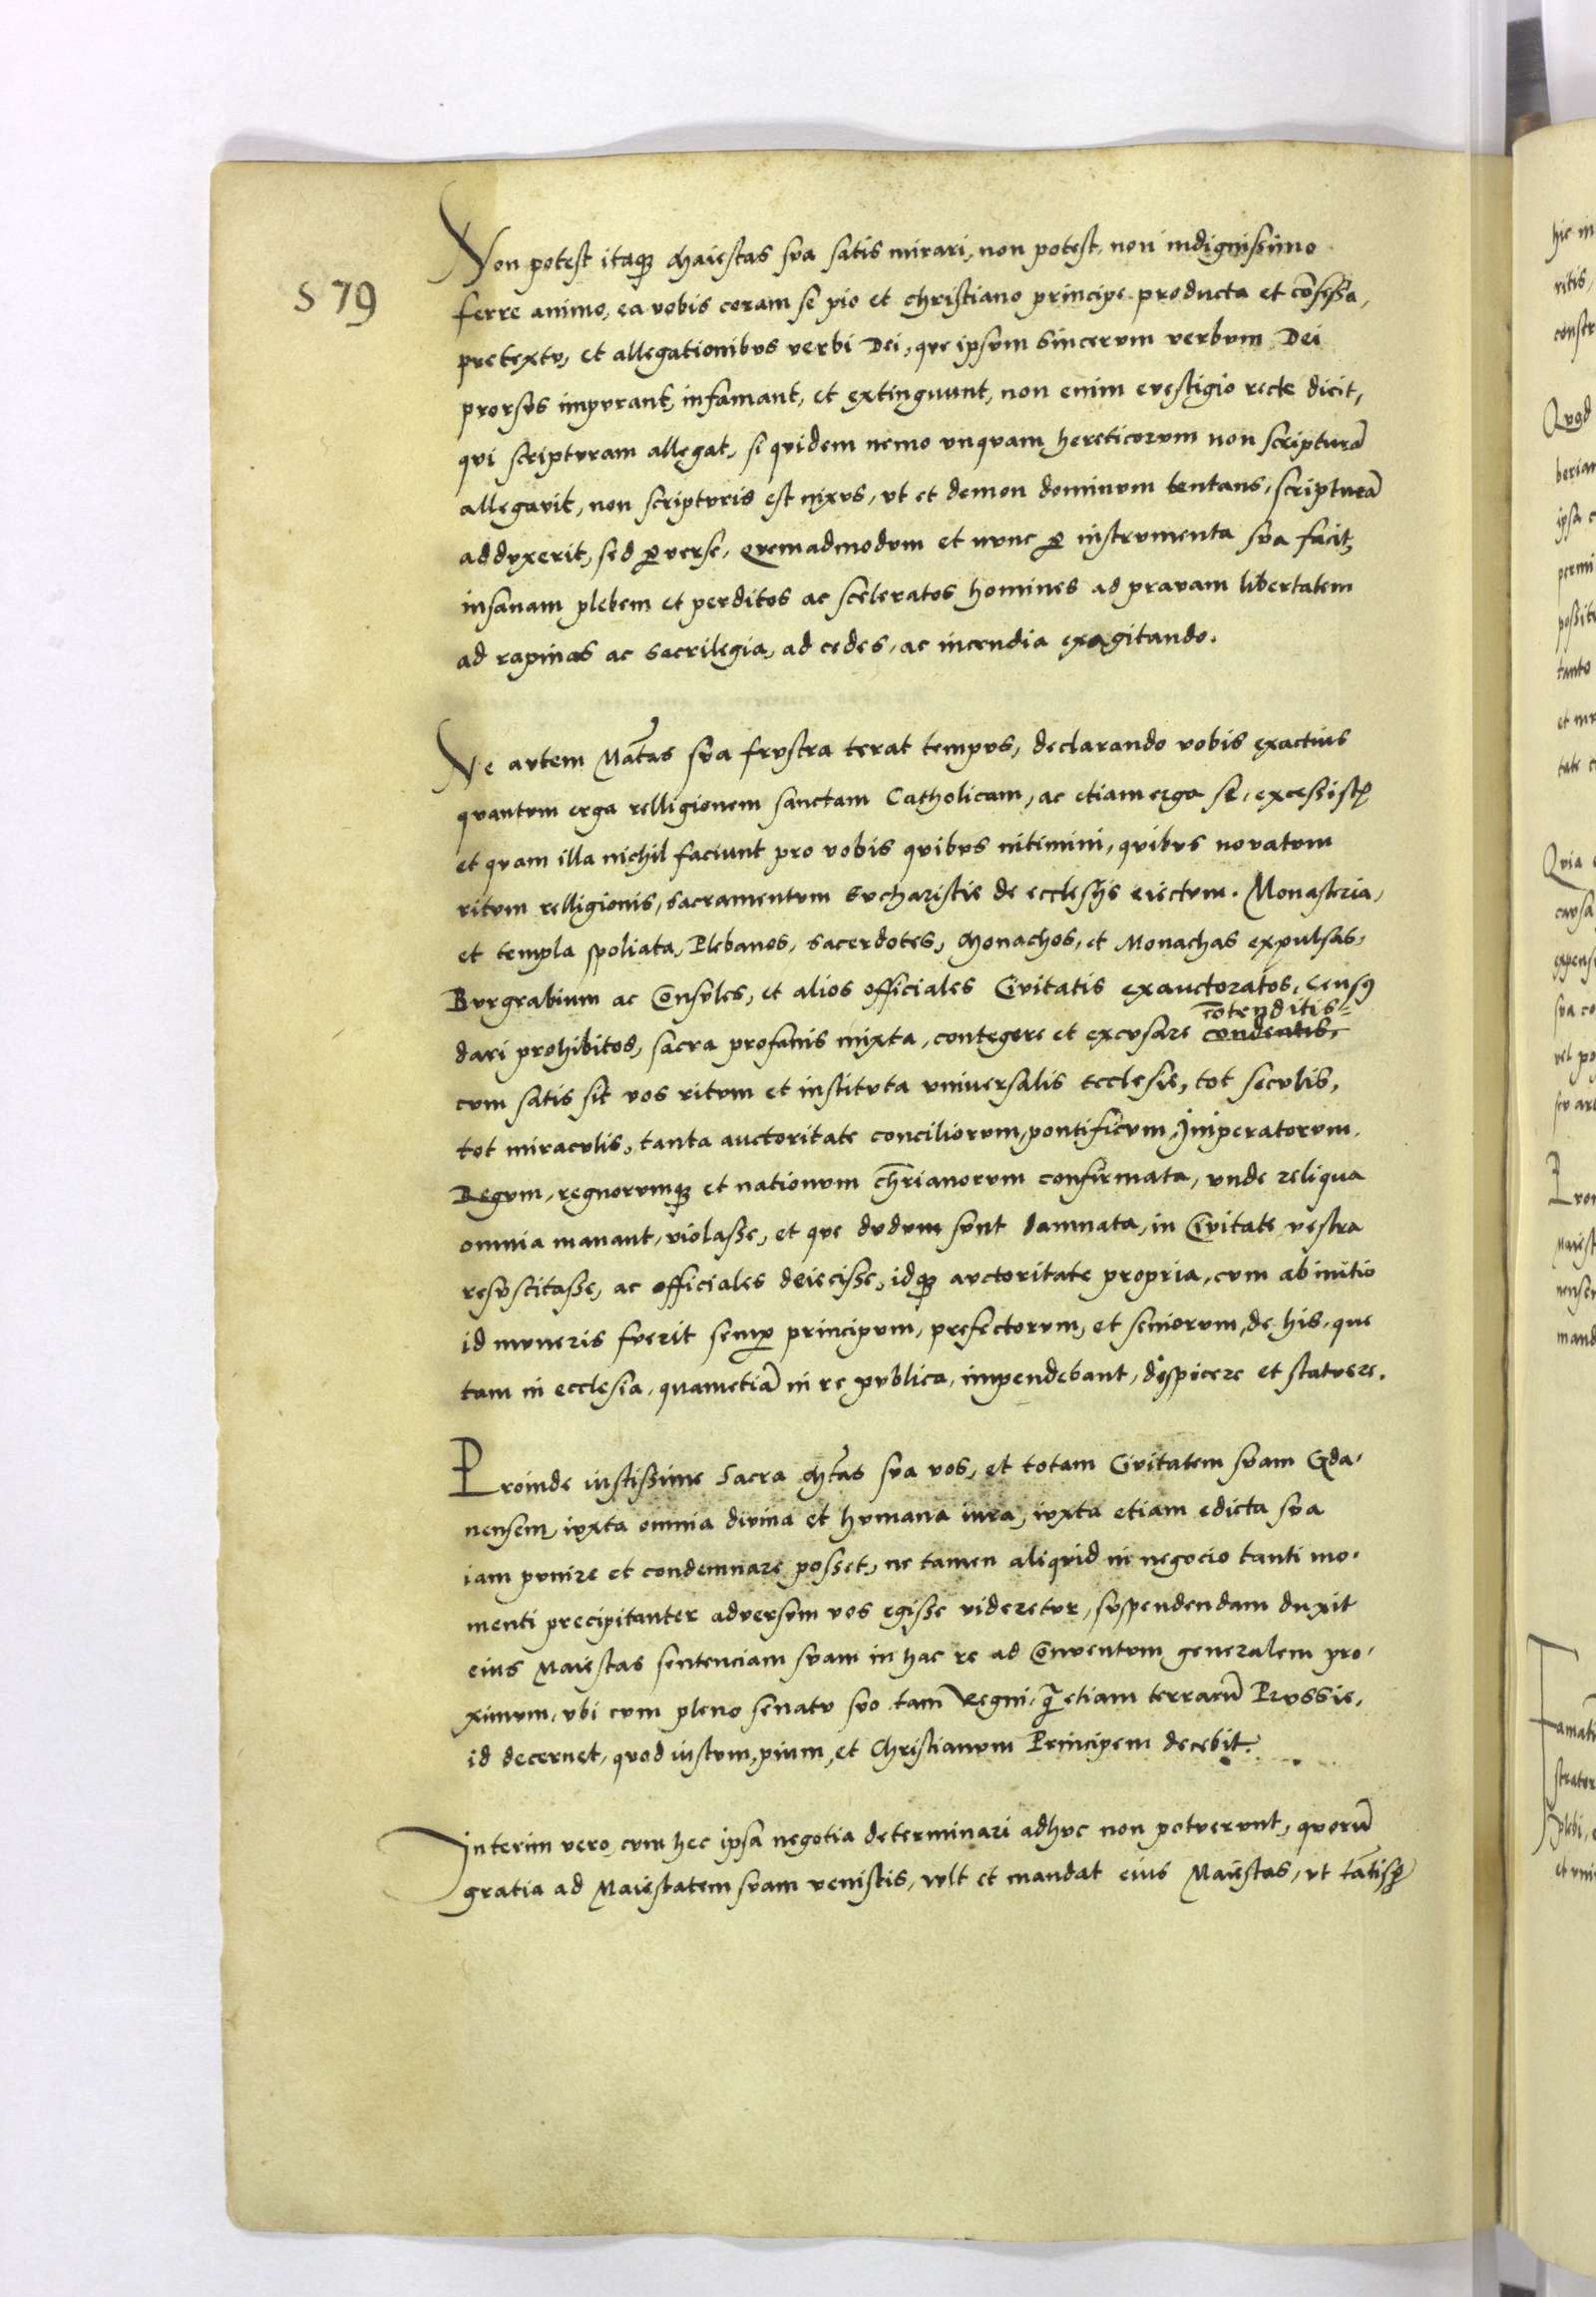 S 79
Non potest itaq₃ Maiestas sua satis mirari, non potest, non indignissimo
ferre animo, ea vobis coram se pio et christiano principe producta et cōfessa,
pretextu, et allegationibus verbi Dei, que ipsum sincerum verbum Dei
prorsus impurant, infamant, et extinguunt, non enim evestigio recte dicit,
qui scripturam allegat, si quidem nemo unquam hereticorum non scripturā
allegavit, non scripturis est nixus, ut et demon dominum tentans, scripturā
adduxerit, sed ꝑverse, quemadmodum et nunc ꝑ instrumenta sua facit,
insanam plebem et perditos ac sceleratos homines ad pravam libertatem
ad rapinas ac sacrilegia, ad cedes, ac incendia exagitando.
Ne autem Matas sua frustra terat tempus, declarando vobis exactius
quantum erga relligionem sanctam Catholicam, ac etiam erga se, excessistꝭ
et quam illa nichil faciunt pro vobis quibus nitimini, quibus novatum
ritum relligionis, sacramentum Eucharistie de ecclesijs eiectum. Monasteria,
et templa spoliata, Plebanos, sacerdotes, Monachos, et Monachas expulsas,
Burgrabium ac Consules, et alios officiales Civitatis exauctoratos, Censꝰ
cōtenditis
dari prohibitos, sacra profanis mixta, contegere et excusare
cum satis sit vos ritum et instituta universalis Ecclesie, tot seculis,
tot miraculis, tanta auctoritate conciliorum, pontificum, Imperatorum,
Regum, regnorumq₃ et nationum chr̄ianorum confirmata, unde reliqua
omnia manant, violasse, et que dudum sunt damnata, in Civitate vestra
resuscitasse, ac officiales deiecisse, idq₃ auctoritate propria, cum ab initio
id muneris fuerit semꝑ principum, prefectorum, et seniorum, de his, que
tam in ecclesia, quametiā in re publica, impendebant, dispicere et statuere.
Proinde iustissime Sacra Mtas sua vos, et totam Civitatem suam Gda-
nensem, iuxta omnia divina et humana iura, iuxta etiam edicta sua
iam punire et condemnare posset, ne tamen aliquid in negocio tanti mo-
menti precipitanter adversum vos egisse videretur, suspendendam duxit
eius Maiestas sentenciam suam in hac re ad Conventum generalem pro-
ximum, ubi cum pleno senatu suo tam Regni, q̄ etiam terrarū Prussie,
id decernet, quod iustum, pium, et Christianum Principem decebit.
Interim vero, cum hec ipsa negotia determinari adhuc non potuerunt, quorū
gratia ad Maiestatem suam venistis, vult et mandat eius Maiestas, ut tātisꝑ